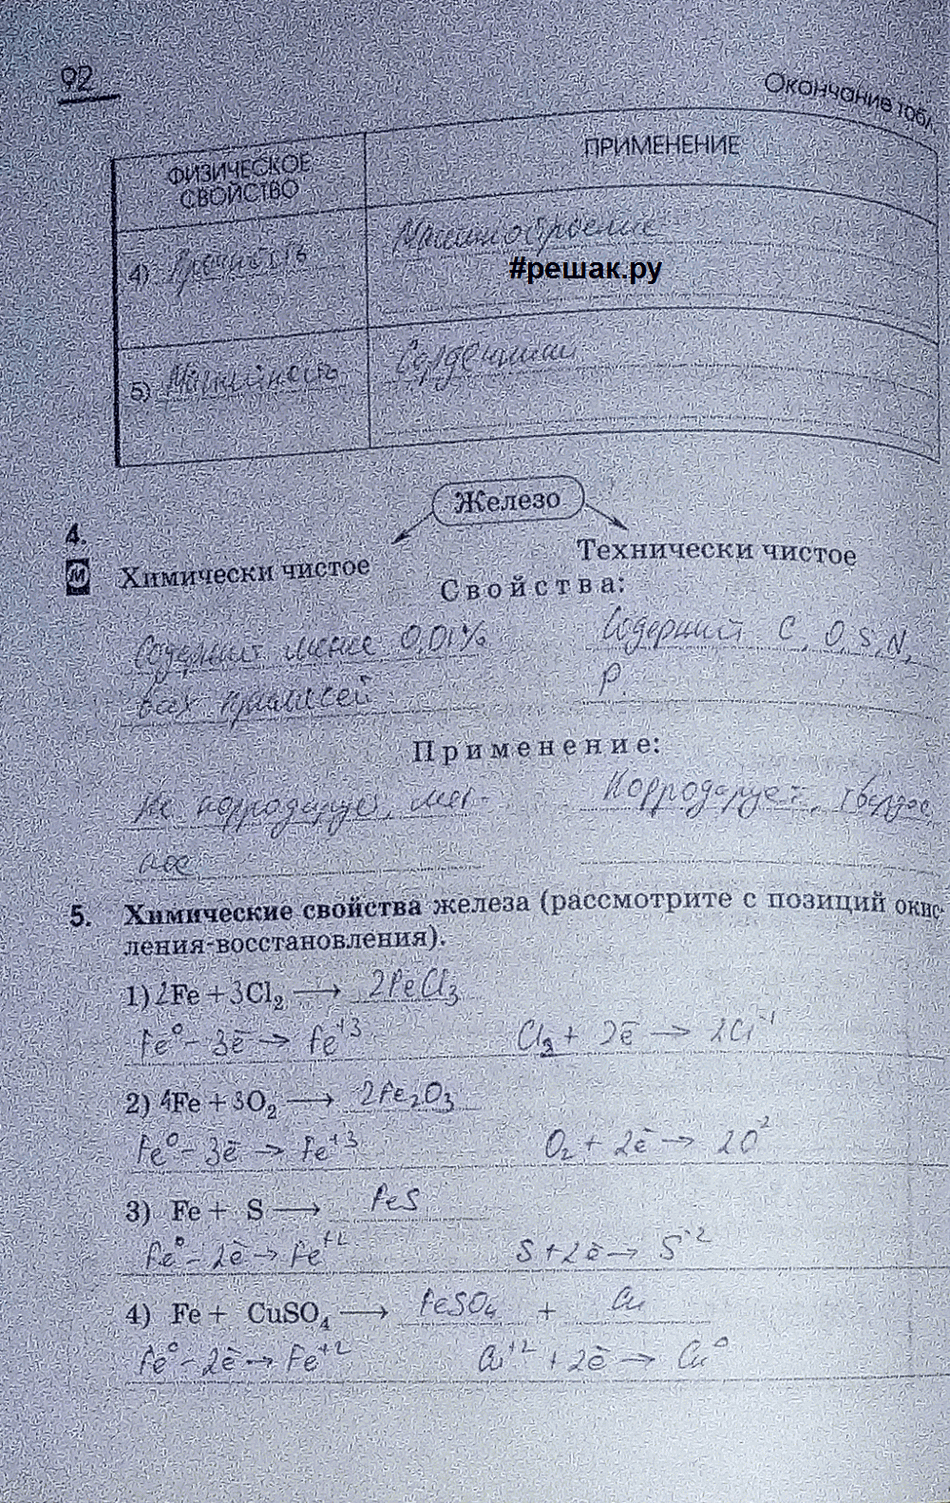 92
Окончание табл.
ФИЗИЧЕСКОЕ СВОЙСТВО
ПРИМЕНЕНИЕ
4) Прочность
Машиностроение
#решак.ру
5)
Сердечники
4.
Железо
М
Химически чистое
Технически чистое
Свойства:
Содержит менее 0,01%
всех примесей
Содержит C, O, S, N,
P.
Применение:
Не корродирует, мяг-
кое
Корродирует, твердое
5. Химические свойства железа (рассмотрите с позиций окис-
ления-восстановления).
1) 2Fe + 3Cl₂ ⟶ 2FeCl₃
Fe⁰ - 3ē → Fe⁺³ Cl₂ + 2ē → 2Cl⁻¹
2) 4Fe + 3O₂ ⟶ 2Fe₂O₃
Fe⁰ - 3ē → Fe⁺³ O₂ + 2ē → 2O²
3) Fe + S ⟶ FeS
Fe⁰ - 2ē → Fe⁺² S + 2ē → S⁻²
4) Fe + CuSO₄ ⟶ FeSO₄ + Cu
Fe⁰ - 2ē → Fe⁺² Cu⁺² + 2ē → Cu⁰